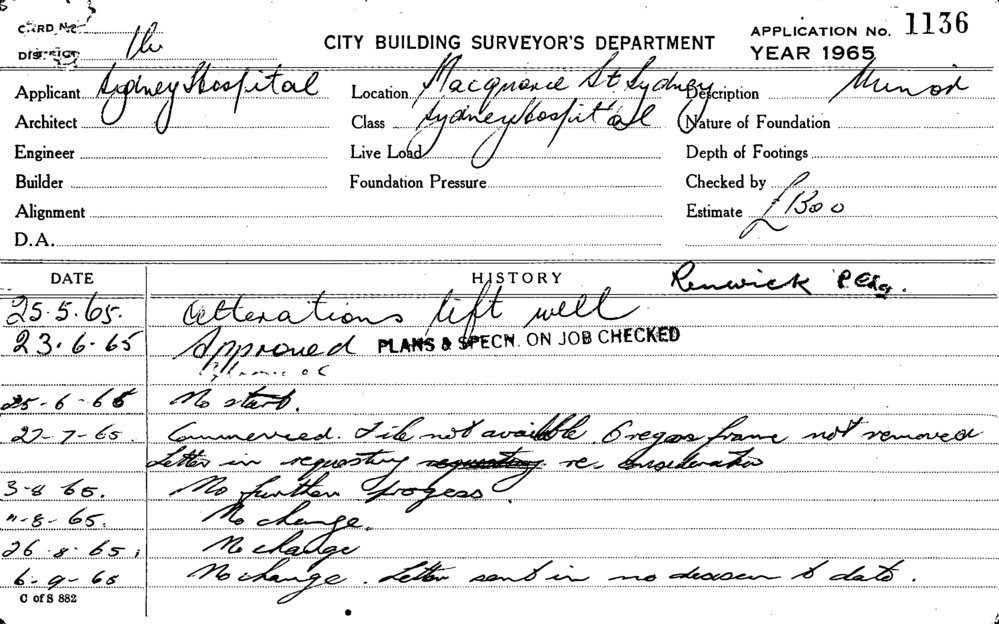 CARD No.
DISTRICT
CITY BUILDING SURVEYOR'S DEPARTMENT
APPLICATION No. 1136
YEAR 1965
Applicant Sydney Hospital
Location Macquarie St. Sydney
Description Minor
Architect
Class Sydney Hospital
Nature of Foundation
Engineer
Live Load
Depth of Footings
Builder
Foundation Pressure
Checked by
Alignment
Estimate £1300
D.A.
DATE HISTORY Renwick
25.5.65. Alterations lift well
23.6.65 Approved PLANS & SPECN. ON JOB CHECKED
25-6-65 No start.
27-7-65. Commenced. File not available. frame not removed
Letter in requesting requesting re-consideration
3-8 65. No further progess.
11-8-65. No change.
26.8.65. No change
6-9-65 No change. Letter sent in no decision to date.
C of S 882